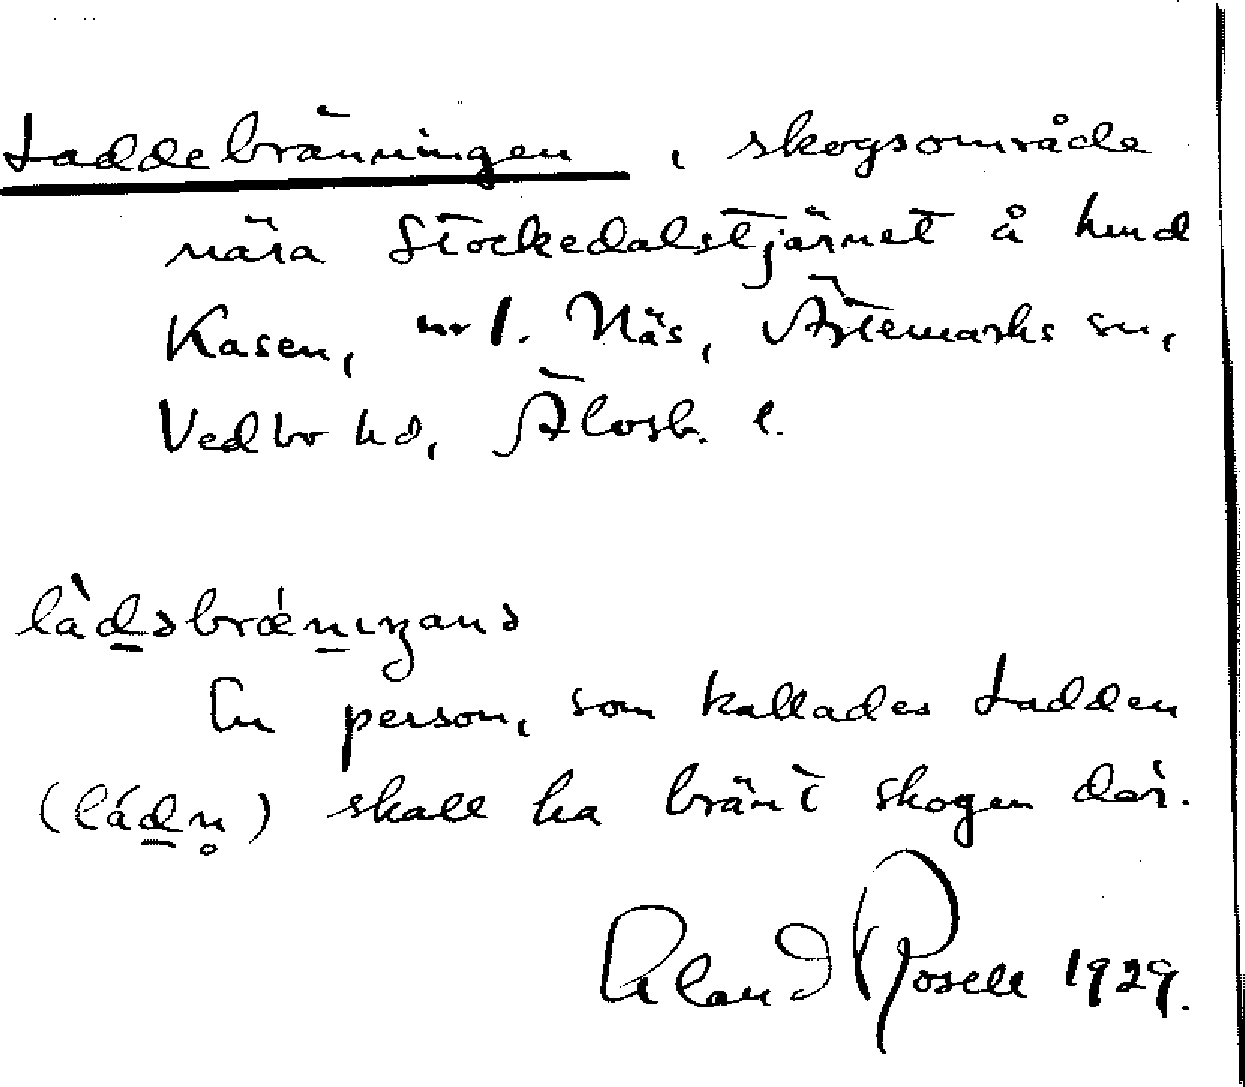 Laddebränningen, skogsområde
nära Stockedalstjärnet å hmd
Kasen, nr 1. Näs, Ärtemarks sn,
Vedbo hd, Älvsb. l.
En person, som kallades Ladden
skall ha bränt skogen där.
Rosell 1929.